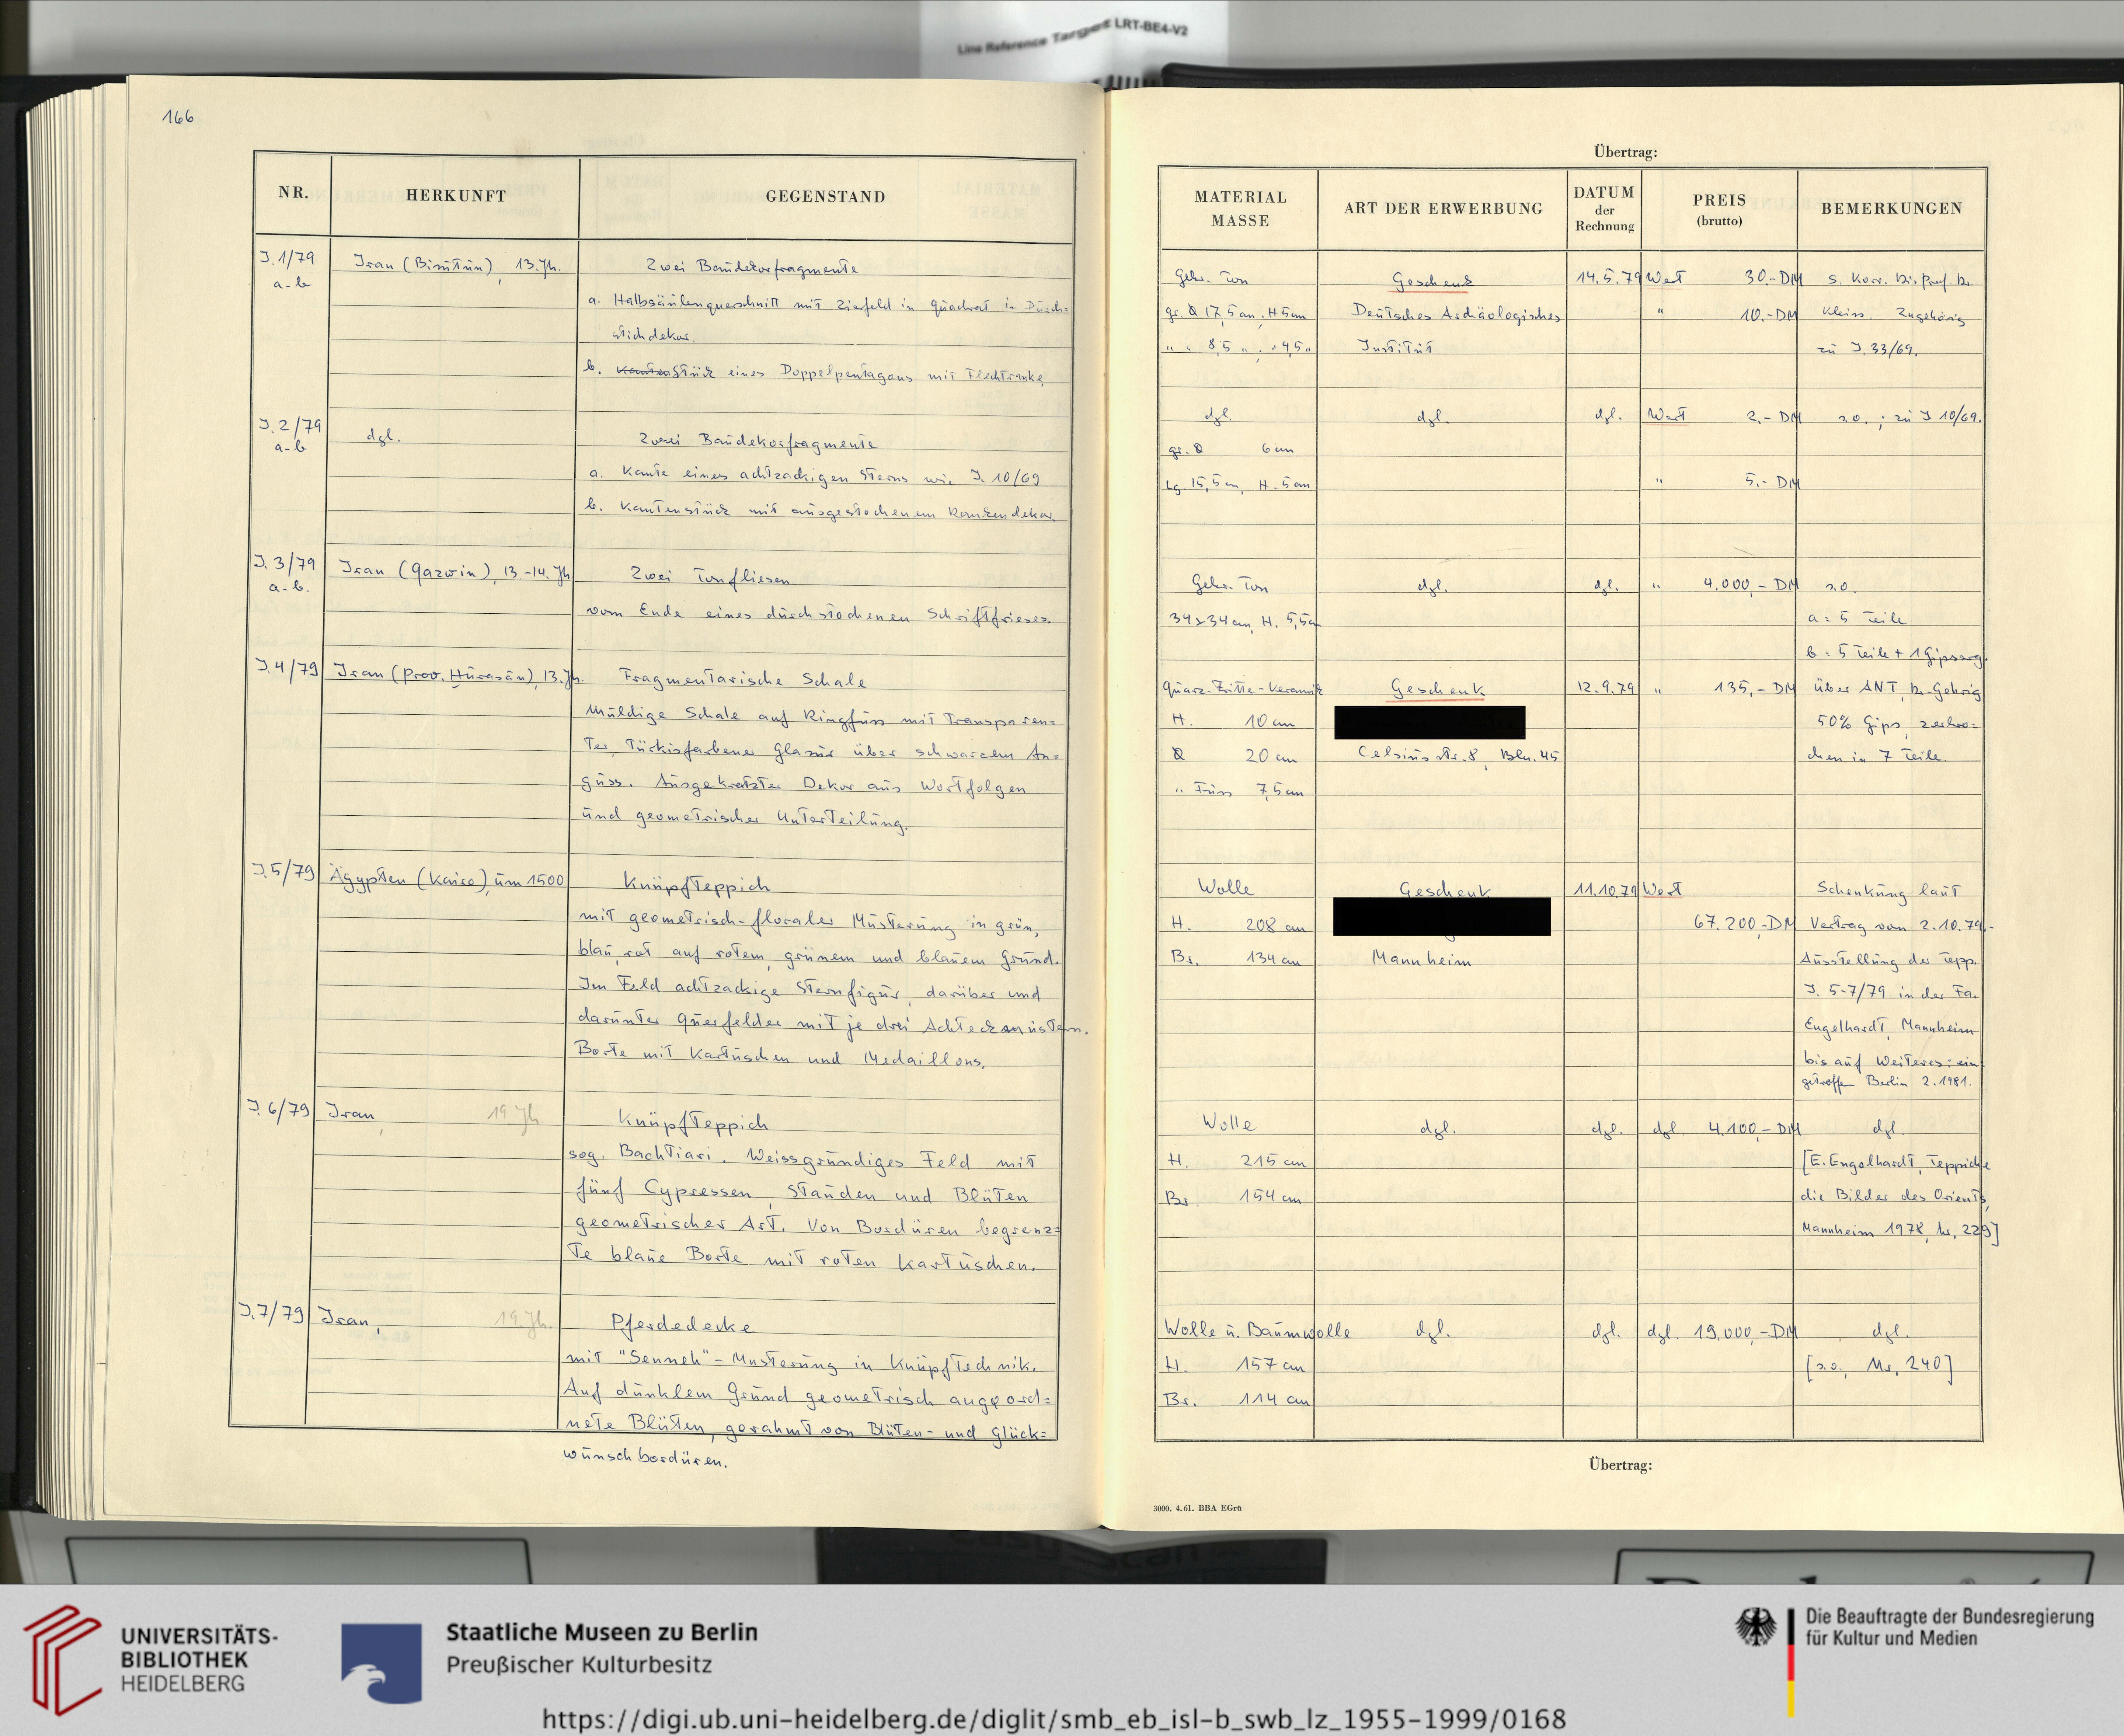 Line Reference Target LRT-BE4-V2
166
NR.
HERKUNFT
GEGENSTAND
J. 1/79
a-b
Iran (Bisutun), 13. Jh.
Zwei Baudekorfragmente
a. Halbsäulenquerschnitt mit Zierfeld in Quadrat in Durch=
stichdekor.
b. Stück eines Doppelpentagons mit Flechtranke
J. 2/79
a-b
dgl.
Zwei Baudekorfragmente
a. Kante eines achtzackigen Sterns wie J. 10/69
b. Kantenstück mit ausgestochenem Rankendekor.
J. 3/79
a-b.
Iran (Qazwin), 13-14. Jh
Zwei Tonfliesen
vom Ende eines durchstochenen Schriftfrieses.
J. 4/79
Iran (Prov. Hurasān), 13. Jh.
Fragmentarische Schale
Muldige Schale auf Ringfuss mit Transparen=
ter, Türkisfarbener Glasur über schwarzem An=
guss. Ausgekratzter Dekor aus Wortfolgen
und geometrischer Unterteilung.
J. 5/79
Ägypten (Kairo), um 1500
Knüpfteppich
mit geometrisch-floraler Musterung in grün,
blau, rot auf rotem, grünem und blauem Grund.
Im Feld achtzackige Sternfigur, darüber und
darunter Querfelder mit je drei Achteckmustern.
Borte mit Kartuschen und Medaillons.
J. 6/79
Iran,
19. Jh.
Knüpfteppich
sog. Bachtiari. Weissgründiges Feld mit
fünf Cypressen, Stauden und Blüten
geometrischer Art. Von Bordüren begrenz=
te blaue Borte mit roten Kartuschen.
J. 7/79
Iran,
19. Jh.
Pferdedecke
mit "Senneh"-Musterung in Knüpftechnik.
Auf dunklem Grund geometrisch angeord=
nete Blüten, gerahmt von Blüten- und Glück=
wunschbordüren.
Übertrag:
MATERIAL
MASSE
ART DER ERWERBUNG
DATUM
der
Rechnung
PREIS
(brutto)
BEMERKUNGEN
Gebr. Ton
Geschenk
14.5.79
Wert 30.-DM
s. Korr. Dir. Prof. Dr.
gr. Ø 17,5 cm, H 5 cm
Deutsches Archäologisches
" 10.-DM
Kleiss. Zugehörig
" " 8,5 ", " 4,5 "
Institut
zu J. 33/69.
dgl.
dgl.
dgl.
Wert 2.- DM
s.o.; zu J 10/69.
gr. Ø 6 cm
Lg. 15,5 cm, H. 5 cm
" 5.- DM
Gebr. Ton
dgl.
dgl.
" 4.000,- DM
s.o.
34x34 cm, H. 5,5 cm
a = 5 Teile
b = 5 Teile + 1 Gipserg.
Quarz-Fritte-Keramik
Geschenk
12.9.79
" 135,- DM
über ANT, Dr. Gehrig
H. 10 cm
50% Gips, zerbro=
Ø 20 cm
Celsiusstr. 8, Bln. 45
chen in 7 Teile
" Fuss 7,5 cm
Wolle
Geschenk
11.10.79
Wert
Schenkung laut
H. 208 cm
67.200,-DM
Vertrag vom 2.10.79.-
Br. 134 cm
Mannheim
Ausstellung der Tepp.
J. 5-7/79 in der Fa.
Engelhardt, Mannheim
bis auf Weiteres: ein
getroffen Berlin 2.1981.
Wolle
dgl.
dgl.
dgl 4.100,- DM
dgl.
H. 215 cm
[E. Engelhardt, Teppiche
Br 154 cm
die Bilder des Orients,
Mannheim 1978, Nr. 229]
Wolle u. Baumwolle
dgl.
dgl.
dgl. 19.000,- DM
dgl.
H. 157 cm
[s.o., Nr. 240]
Br. 114 cm
Übertrag:
3000. 4.61. BBA EGrü
UNIVERSITÄTS-
BIBLIOTHEK
HEIDELBERG
Staatliche Museen zu Berlin
Preußischer Kulturbesitz
Die Beauftragte der Bundesregierung
für Kultur und Medien
https://digi.ub.uni-heidelberg.de/diglit/smb_eb_isl-b_swb_lz_1955-1999/0168